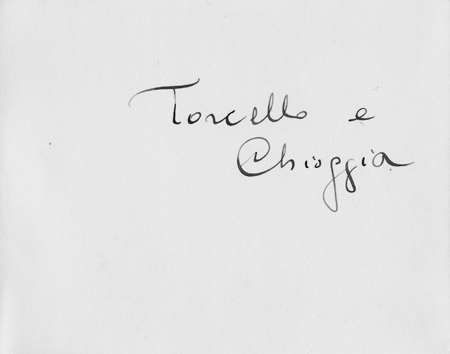 Torcello e
Chioggia